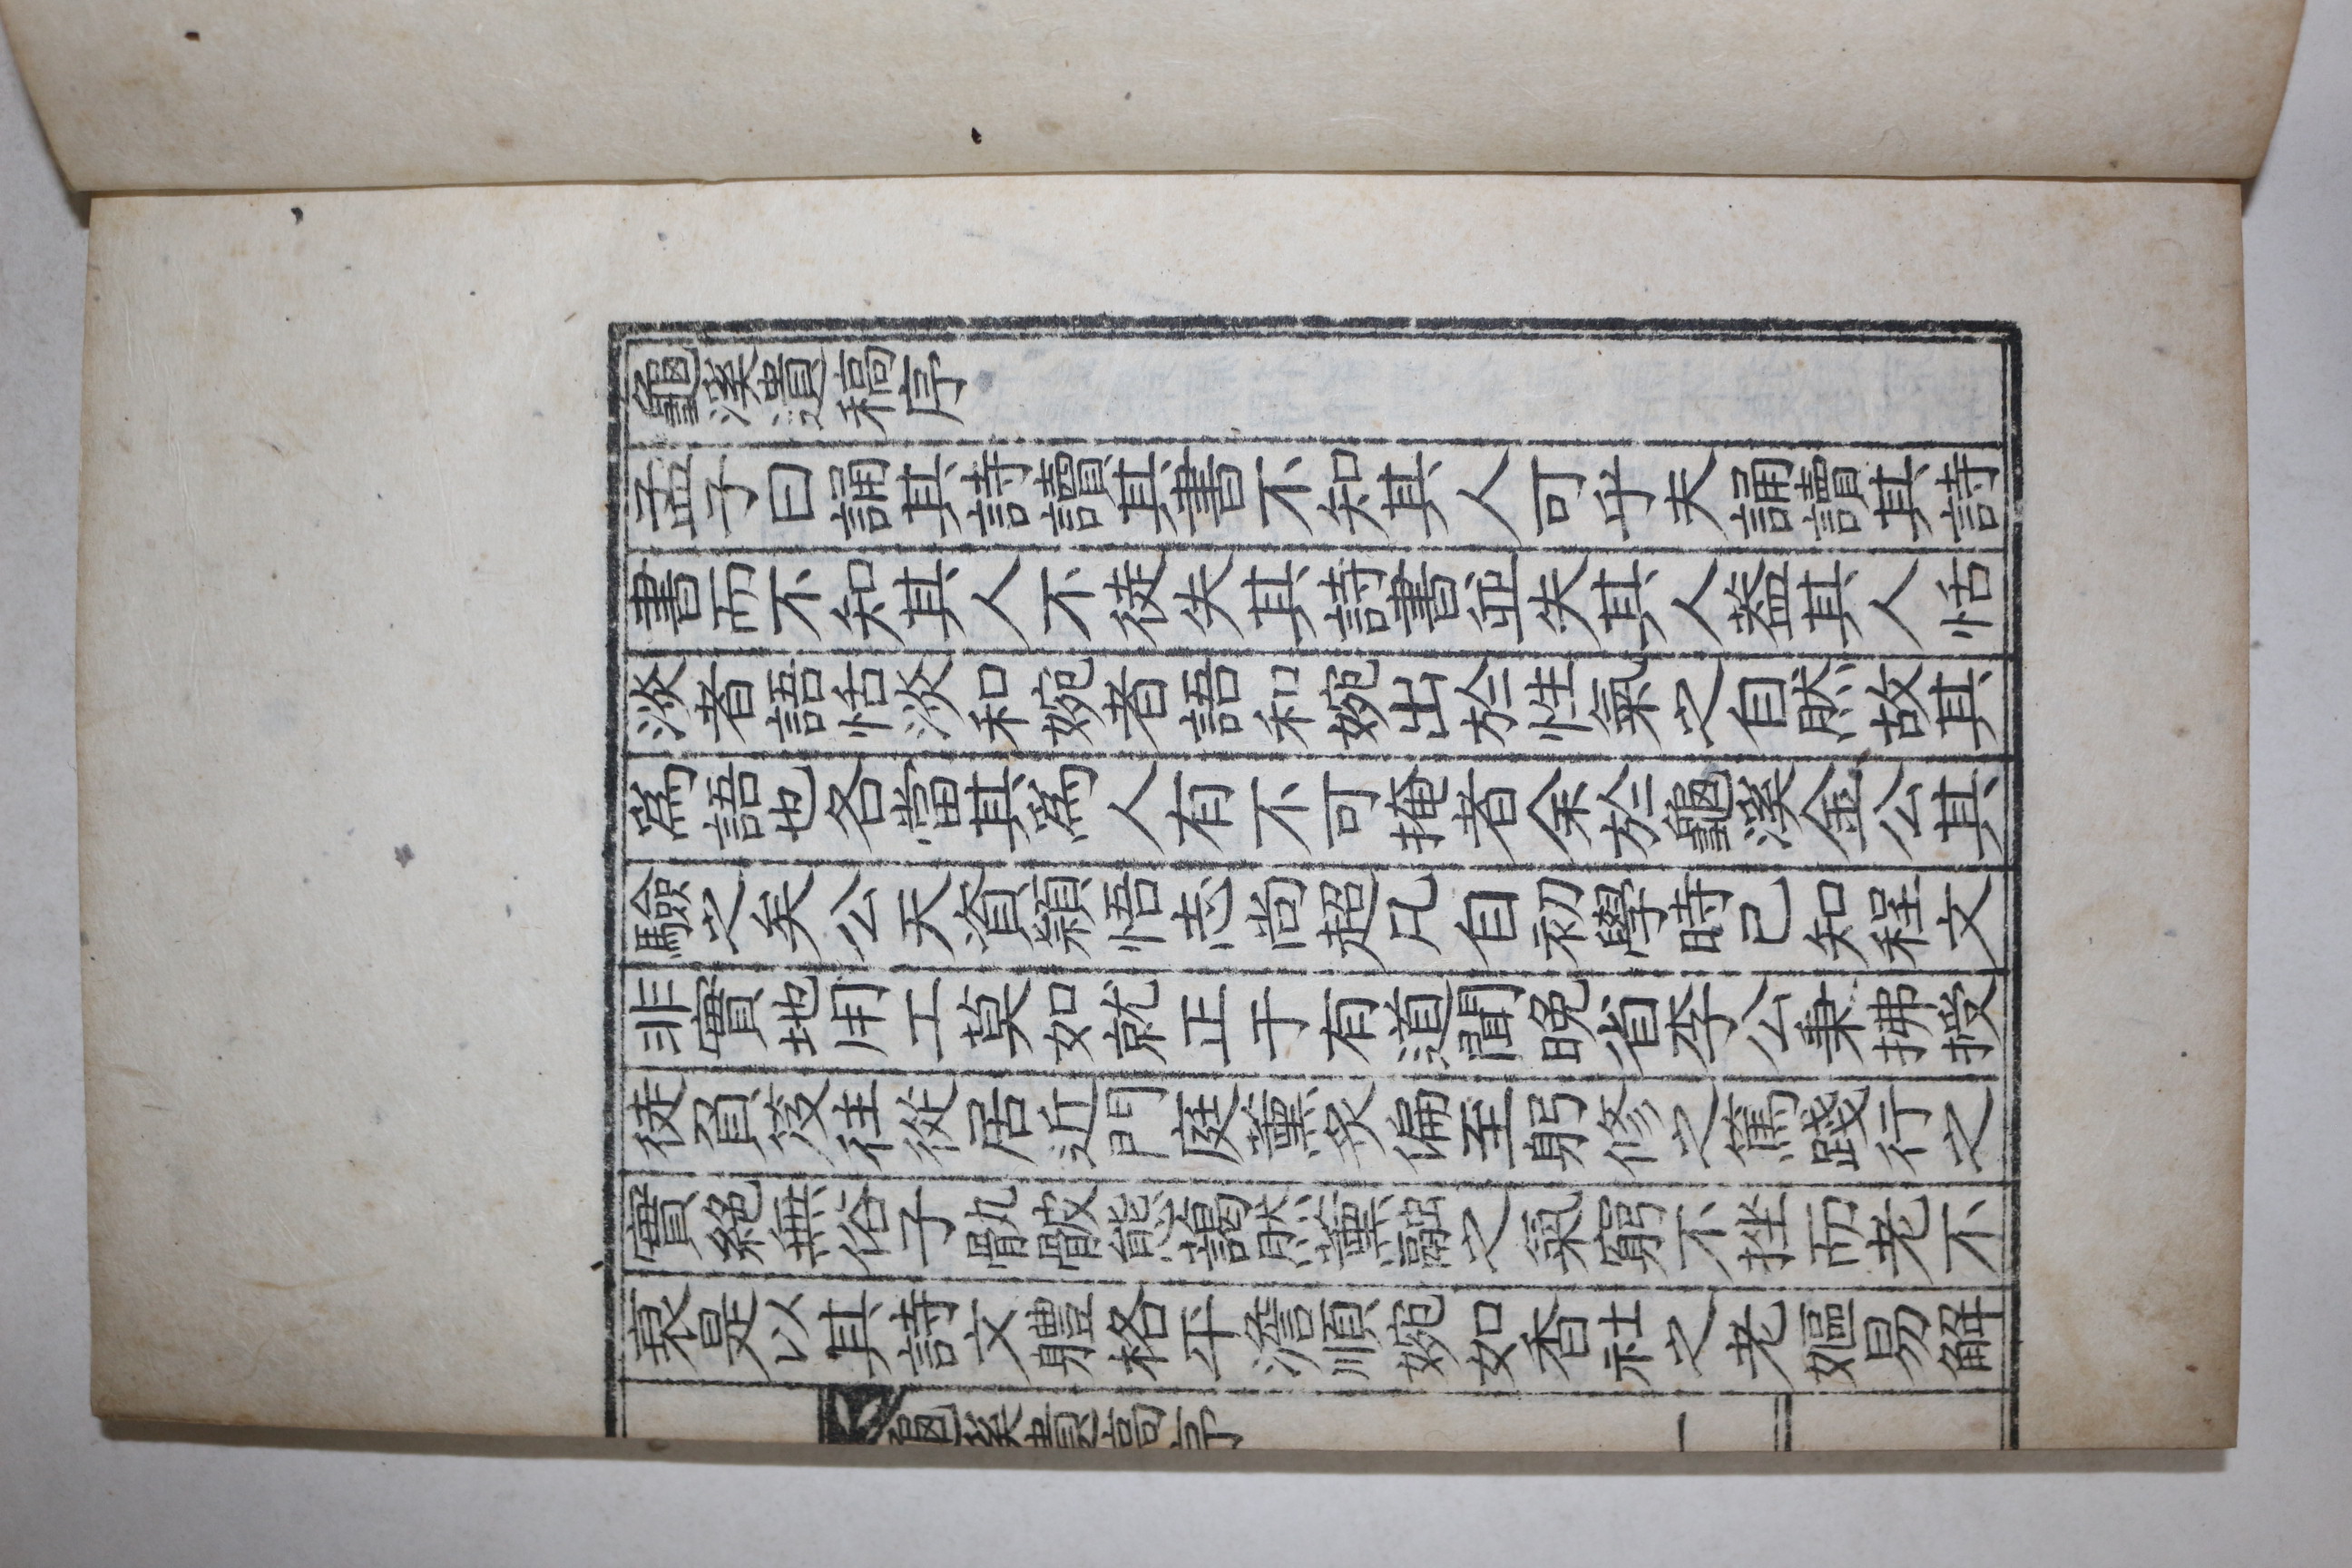 龜溪遺稿序
孟子曰誦其詩讀其書不知其人可乎夫誦讀其詩
書而不知其人不徒失其詩書並失其人盖其人恬
淡者語恬淡和婉者語和婉出於性氣之自然故其
爲語也各當其爲人有不可掩者余於龜溪金公其
驗之矣公天資穎悟志尙超凡自初學時已知程文
非實地用工莫如就正于有道聞晩省李公秉拂授
徒負笈往從居近門庭薰炙偏至躬修之篤踐行之
實絕無俗子骫骳態藹然薰瀜之氣窮不挫而老不
衰是以其詩文軆格平澹順婉如香社之老嫗易解
龜溪遺稿序 一